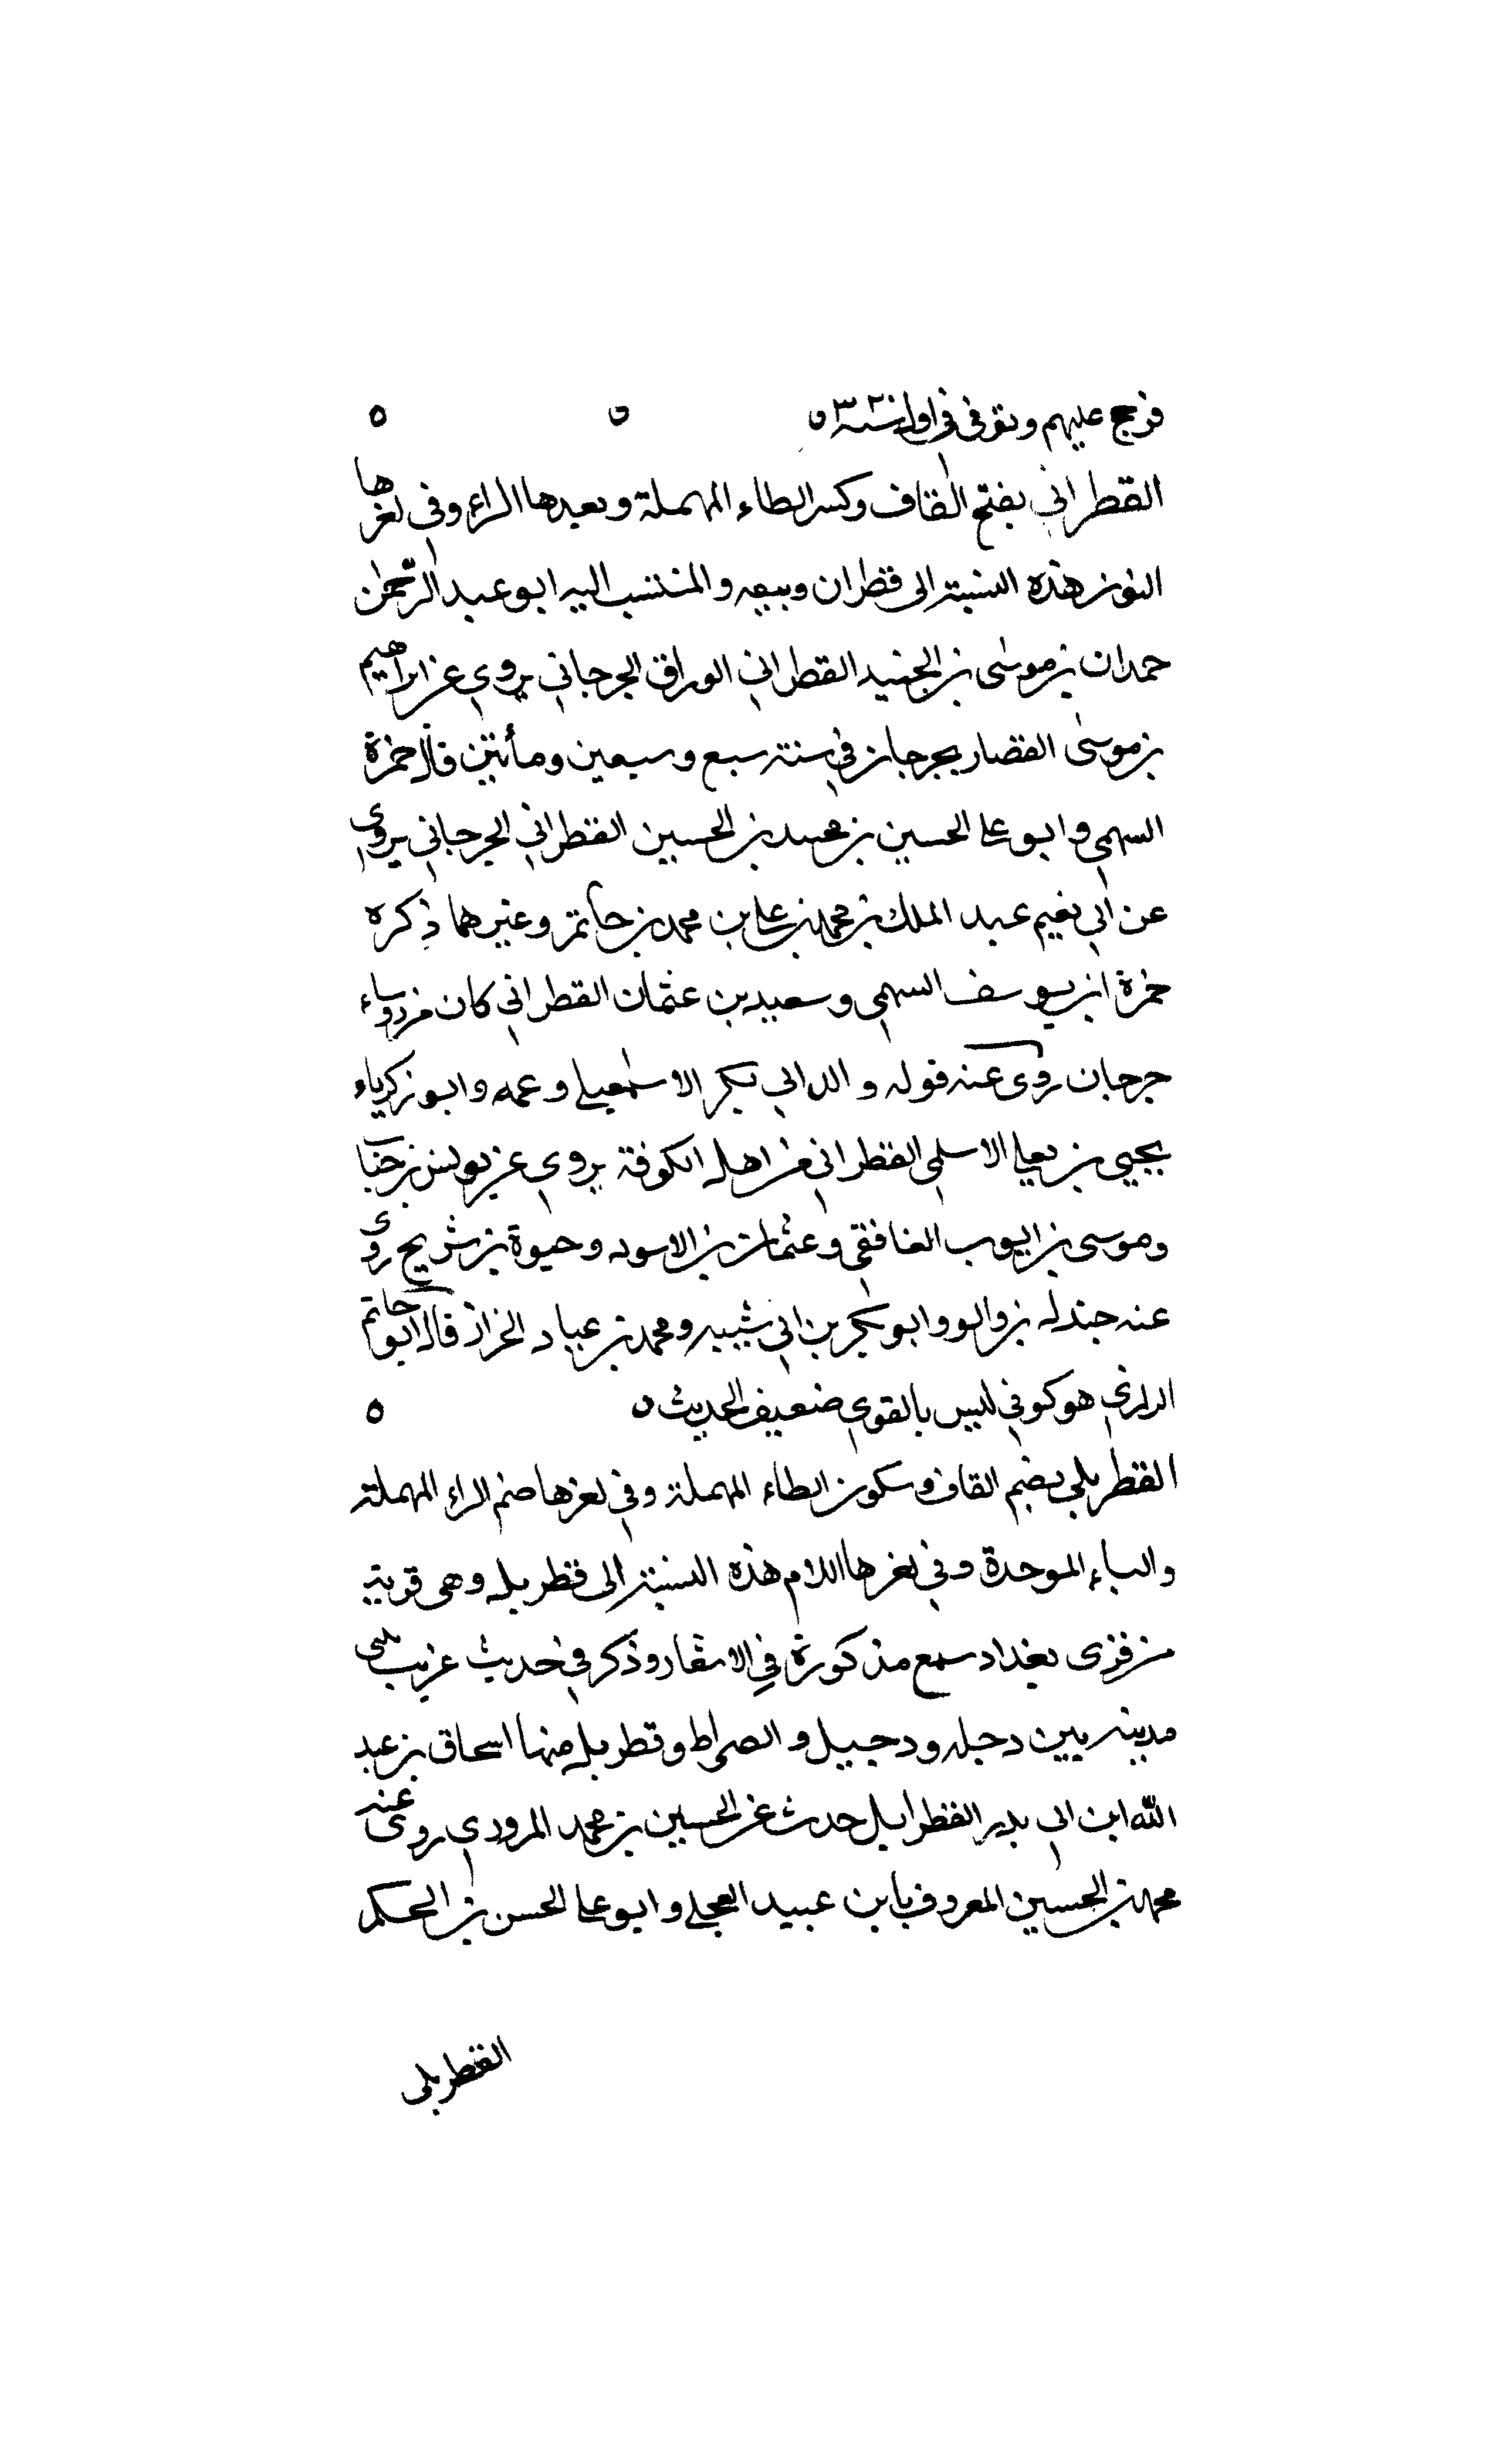 فرجح عليهم وتوفى فى اول سنة ٣٣٢ ه ه ه
القطراني بفتح القاف وكسر الطاء المهملة وبعدها الراء وفي اخرها
النون هذه النسبة الى قطران وبيعه والمنتسب اليه ابو عبد الرحمن
حمدان بن موسى بن الجنيد القطراني الوراق الجرجاني يروي عن ابراهيم
بن موسى القصار بجرجان في سنة سبع وسبعين ومأتين قال حمزة
السهمي وابو على الحسين بن محمد بن الحسين القطراني الجرجاني يروي
عن ابي نعيم عبد الملك بن محمد بن على بن محمد بن حاتم وغيرهما ذكره
حمزة ابن يوسف السهمي وسعيد بن عثمان القطراني كان من روساء
جرجان روى عنه قوله والد ابي بكر الاسمعيلي وعمه وابو زكرياء
يحيى بن يعلى الاسلمي القطراني من اهل الكوفة يروي عن يونس بن خباب
وموسى بن ايوب الغافقي وعثمان بن الاسود وحيوة بن شريح روى
عنه جندل بن والو وابو بكر بن ابي شيبه ومحمد بن عباد الخزاز قال ابو حاتم
الرازي هو كوفي ليس بالقوي ضعيف الحديث ه ه
القطربلي بضم القاف وسكون الطاء المهملة وفي اخرها ضم الراء المهملة
والباء الموحدة وفي اخرها اللام هذه النسبة الى قطربل وهى قرية
من قرى بغداد سمع مذكورة في الاشعار وذكر في حديث غريب تبنى
مدينة بين دجله ودجيل والصراط وقطربل منها اسحاق بن عبد
الله ابن ابي بدر القطرابلى حدث عن الحسين بن محمد المرودي روى عنه
محمد بن الحسين المعروف بابن عبيد العجلي وابو على الحسن بن الحكم
القطربلى